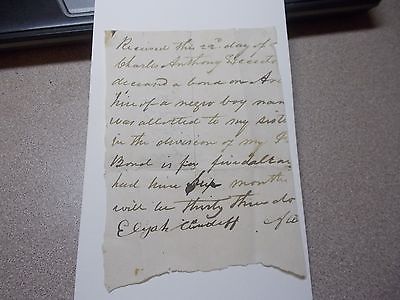 Received this 22nd day of
Charles Anthony
deceasd a bond on
hire of a negro boy nam
was allotted to my siste
in the division of my
Bond is for five dollars
had him six months
will be thirty three do
Elijah Cundiff